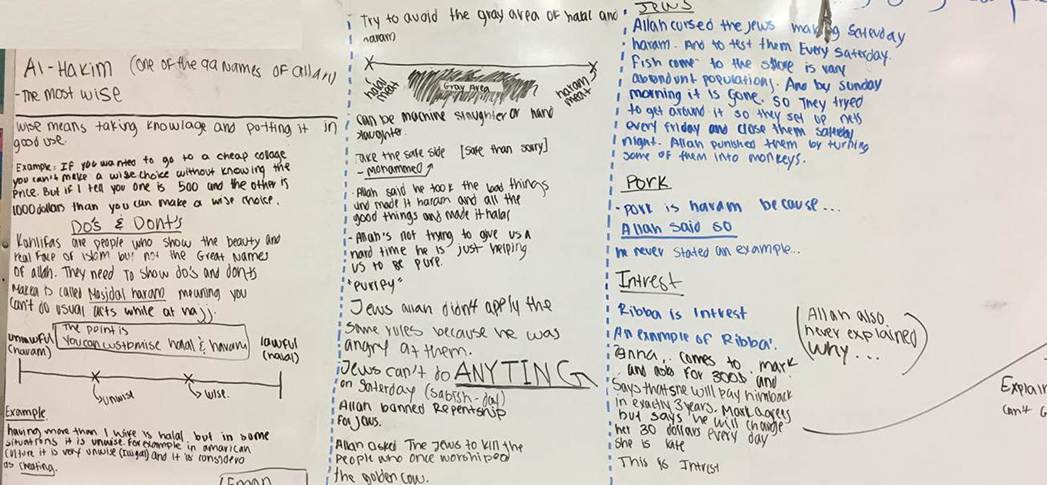 Al-Hakim (One of the 99 Names of allah)
-The most wise
wise means taking knowlage and potting it in
good use.
Example: If you wanted to go to a cheap collage
you can't make a wise choice without knowing the
Price. But if I tell you one is 500 and the other is
1000 dollars than you can make a wise choice.
Do's & Dont's
Kahlifas are people who show the beauty and
real Face of islam but not the Great Names
of allah. They need To show do's and donts
Makka is called Masjidal haram meaning you
Can't do usual acts while at hajj.
The point is
You can customise halal & haram
unlawful
(haram)
lawful
(halal)
unwise
wise.
Example
having more than 1 wife is halal but in some
situations it is unwise. For example in amarican
culture it is very unwise and it is considerd
as cheating.
Try to avoid the gray area of halal and
haram
halal
meat
Gray Area
haram
meat
can be machine slaughter or hand
slaughter.
Take the safe side [safe than sorry]
- mohammed
- Allah said he took the bad things
and made it haram and all the
good things and made it halal
- Allah's not trying to give us a
hard time he is just helping
us to be pure.
"purfey"
Jews allah didn't apply the
same rules because he was
angry at them.
Jews can't do ANYTING
on Saterday (Sabish-day)
Allah banned Repentship
For Jews.
Allah asked The Jews to kill the
people who once worshiped
the golden cow.
Jews
Allah cursed the Jews making Saterday
haram. And to test them Every Saterday.
Fish come to the shore is vary
abondunt populations. And by sunday
morning it is gone. So They tryed
to get around it so they set up nets
every friday and close them saterday
night. Allah punished them by turning
some of them into monkeys.
Pork
- pork is haram because...
Allah said so
he never stated an example...
Intrest
Ribba is Intrest
An example of Ribba:
Anna, comes to mark
and asks For 300$ and
says that she will pay him back
in exactly 3 years. Mark agrees
but says he will charge
her 30 dollars every day
she is late
This is Intrest
(Allah also
never explained
why...)
Explain
can't